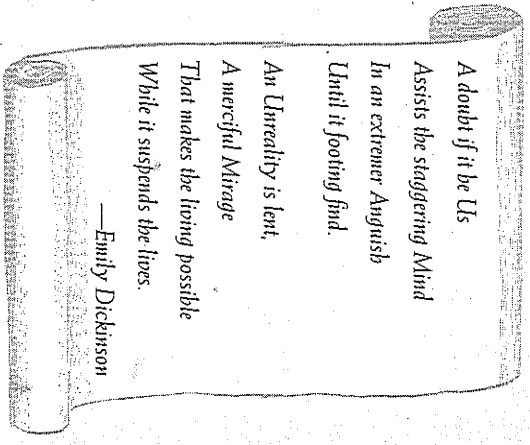 A doubt if it be Us
Assists the staggering Mind
In an extremer Anguish
Until it footing find.
An Unreality is lent,
A merciful Mirage
That makes the living possible
While it suspends the lives.
—Emily Dickinson